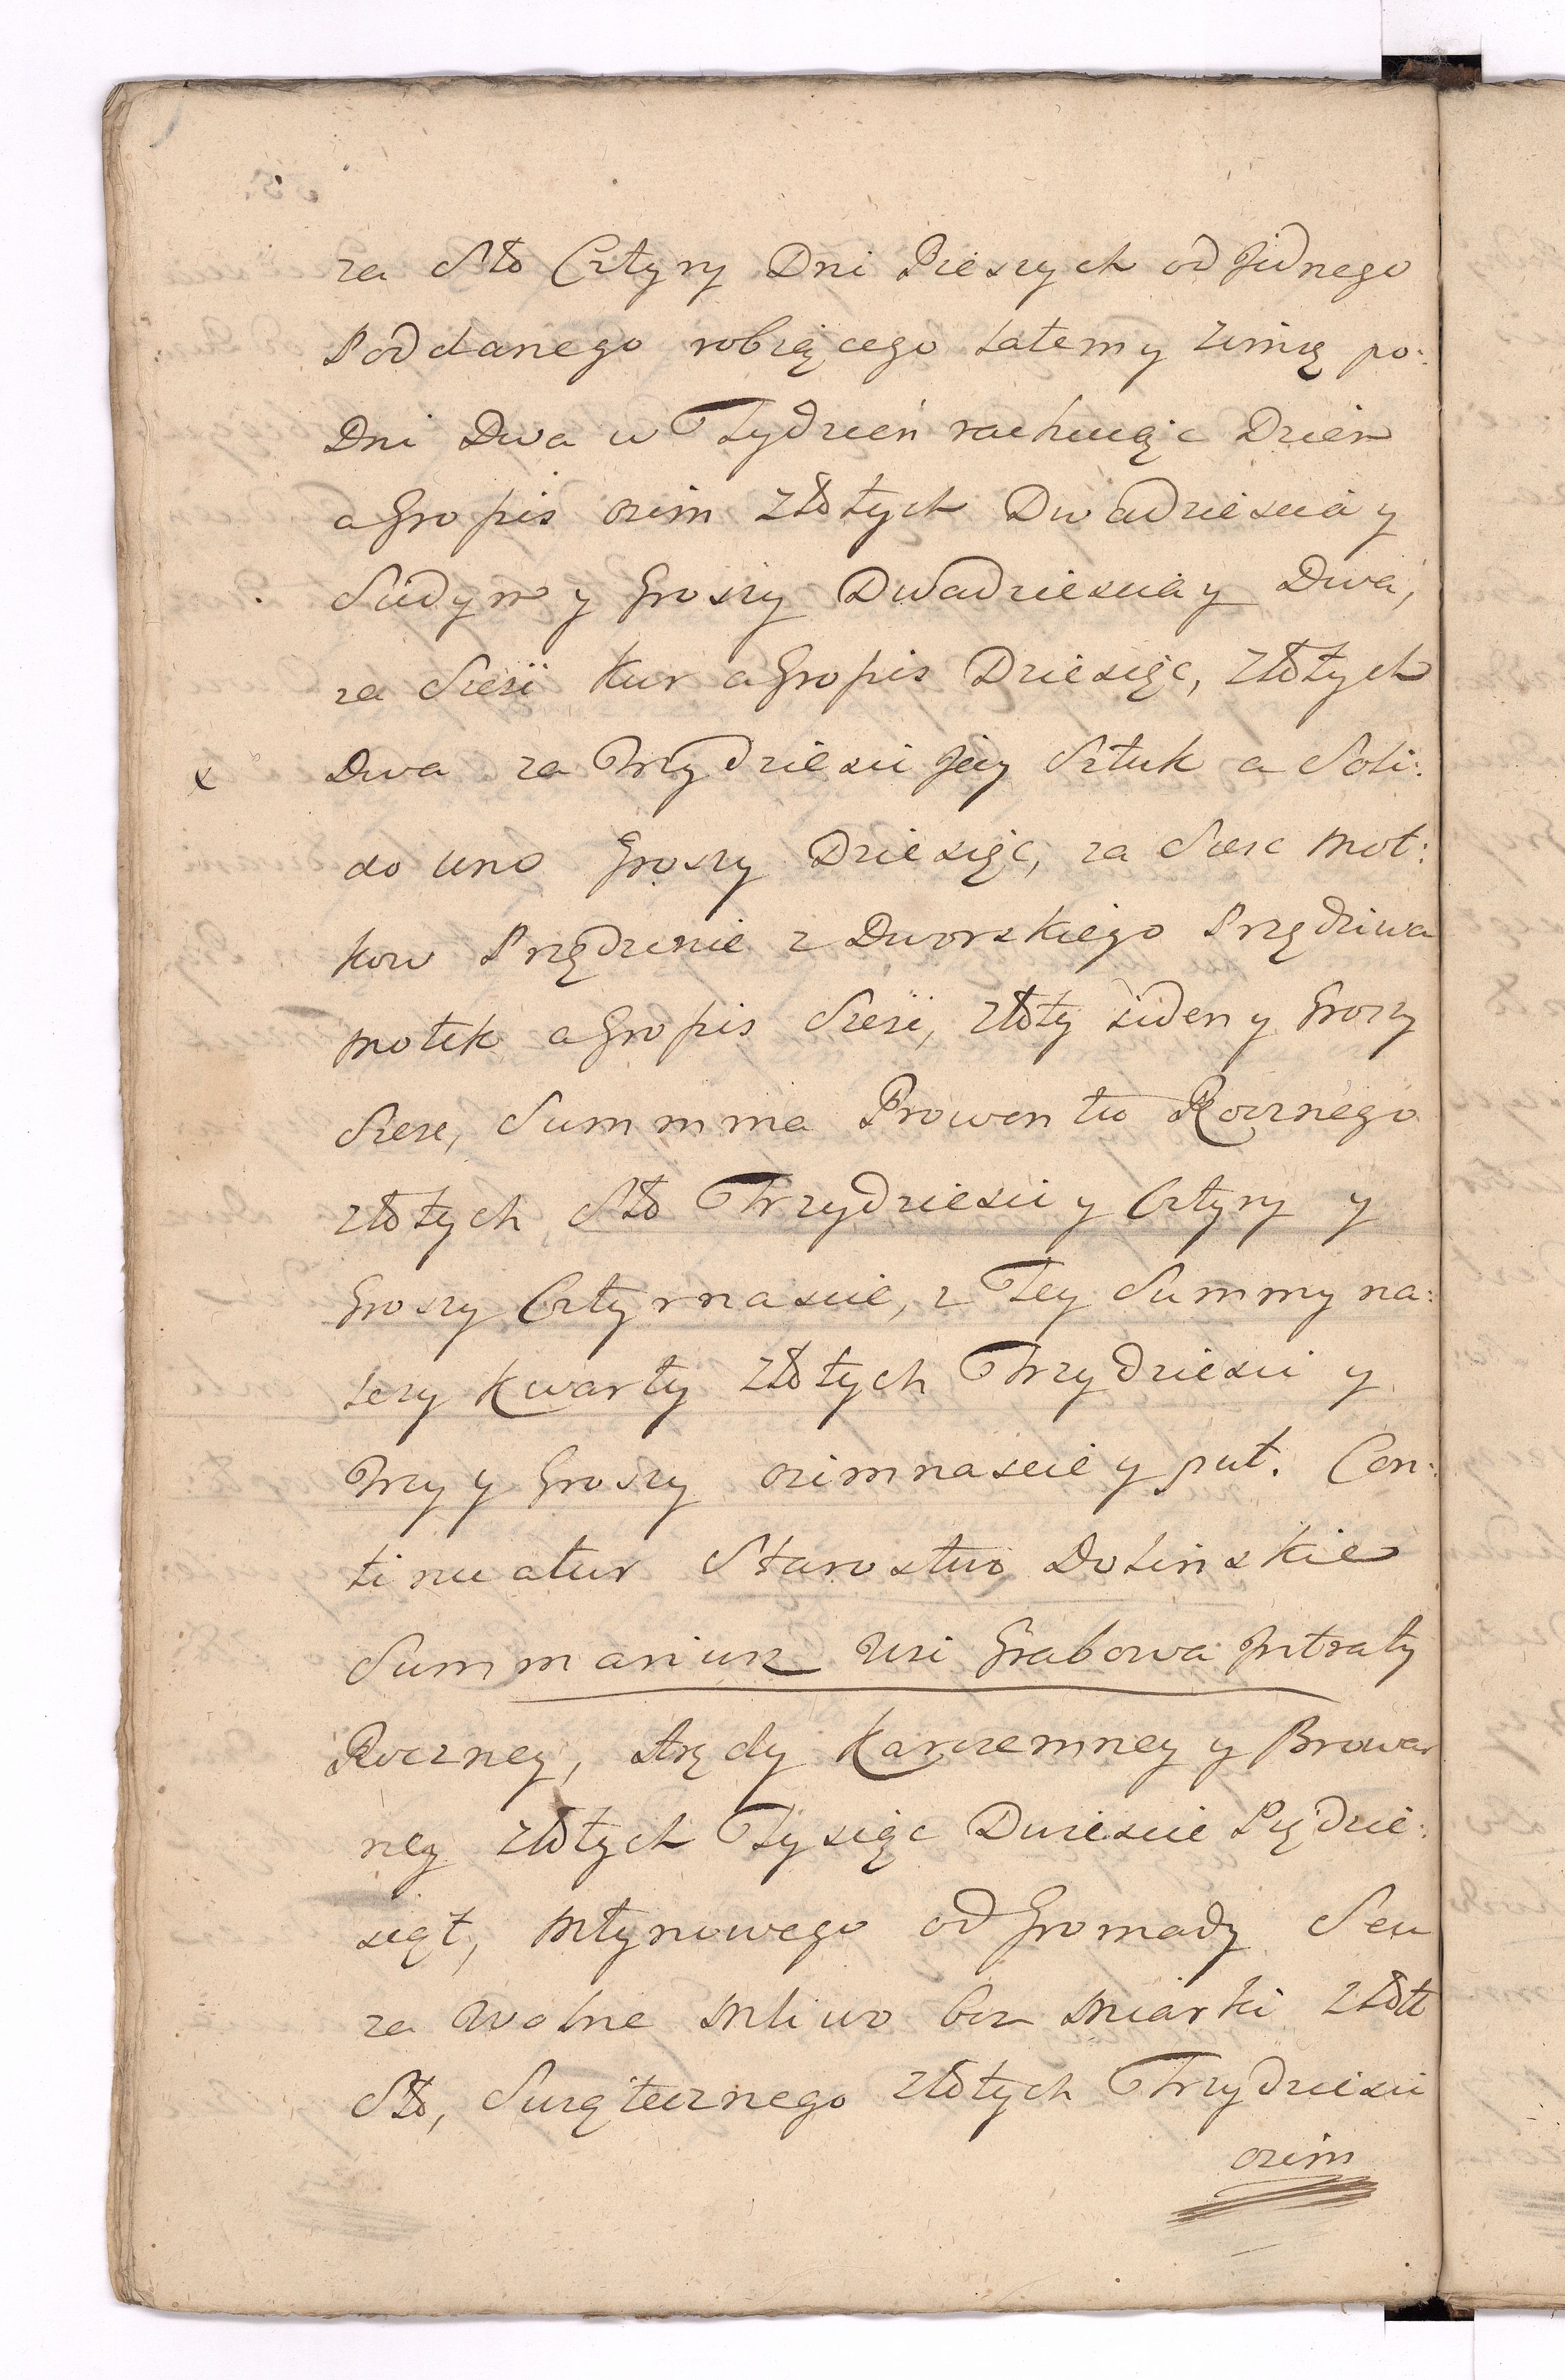 za Sto Cztyry Dni Pieszych od Jednego
Poddanego robiącego Latem y zimą po:
Dni Dwa w Tydzień rachuiąc Dzien
a Gropis ozim złotych Dwadziescia y
Siedym y Groszy Dwadziescia y Dwa,
za Szesć Kur a Gropis Dziesięc, złotych
x Dwa za Trzydziesci Jay Sztuk a Soli:
do uno Groszy Dziesięc, za Szesc Mot:
kow Przędzenie z Dworskiego Przędziwa
motek a Gropis Szesć, złoty ieden y Groszy
Szesc, Summa Prowentu Rocznego
złotych Sto Trzydziesci y Cztyry y
Groszy Cztyrnascie, z Tey Summy na:
lezy Kwarty złotych Trzydziesci y
Trzy y Groszy ozimnascie y puł. Con:
tinuatur Starostwo Dolinskie
Summariusz Wsi Grabowa Jntraty
Roczney, Arędy Karczemney y Browar
ney złotych Tysiąc Dwiescie Piędzie:
siąt, Młynowego od Gromady Seu
za Wolne Mliwo bez Miarki złott
Sto, Surątecznego złotych Trzydziesci
ozim